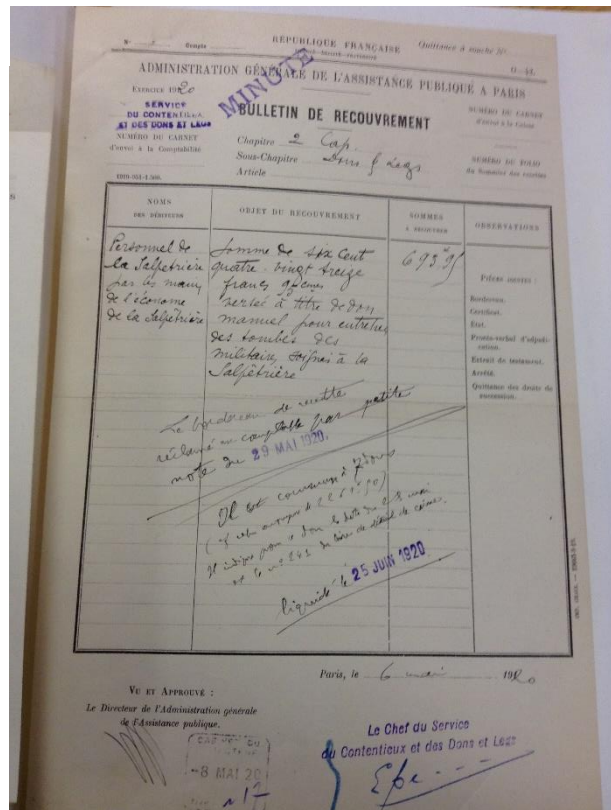 N° Compte
RÉPUBLIQUE FRANÇAISE
Quittance à souche N°
G-44.
ADMINISTRATION GÉNÉRALE DE L'ASSISTANCE PUBLIQUE A PARIS
EXERCICE 1920
MINUTE
SERVICE
DU CONTENTIEUX
ET DES DONS ET LEGS
BULLETIN DE RECOUVREMENT
NUMÉRO DU CARNET
d'envoi à la Caisse
NUMÉRO DU CARNET
d'envoi à la Comptabilité
Chapitre 2 Cap.
Sous-Chapitre Dons & Legs
Article
NUMÉRO DU FOLIO
du Sommier des recettes
NOMS
DES DÉBITEURS
OBJET DU RECOUVREMENT
SOMMES
A RECOUVRER
OBSERVATIONS
Personnel de
la Salpêtrière
par les mains
de l'économe
de la Salpêtrière
Somme de six cent
quatre-vingt treize
francs
versée à titre de don
manuel pour entretien
des tombes des
militaires soignés à la
Salpêtrière
693.95
Pièces jointes :
Bordereau.
Certificat.
État.
Procès-verbal d'adjudi-
cation.
Extrait de testament.
Arrêté.
Quittance des droits de
succession.
Le bordereau de recette
réclamé en comptabilité par petite
note du 29 MAI 1920.
Il est
liquidé le 25 JUIN 1920
Paris, le 6 mai 1920
VU ET APPROUVÉ :
Le Directeur de l'Administration générale
de l'Assistance publique.
-8 MAI 20
Le Chef du Service
du Contentieux et des Dons et Legs